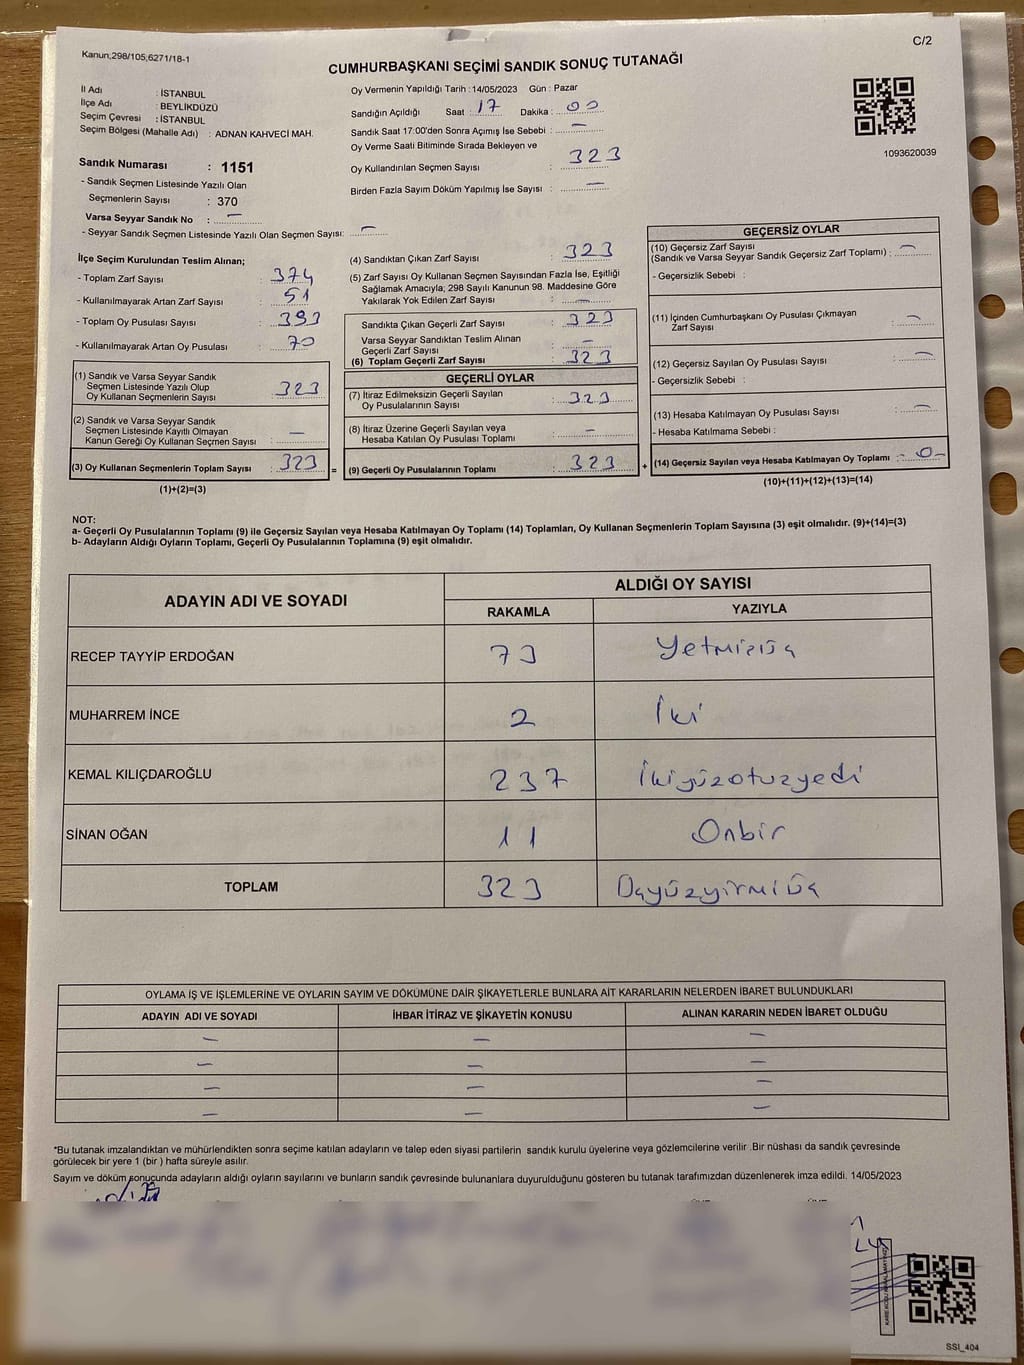 Kanun;298/105;6271/18-1
C/2
CUMHURBAŞKANI SEÇİMİ SANDIK SONUÇ TUTANAĞI
İl Adı : İSTANBUL
İlçe Adı : BEYLİKDÜZÜ
Seçim Çevresi : İSTANBUL
Seçim Bölgesi (Mahalle Adı) : ADNAN KAHVECİ MAH.
Sandık Numarası : 1151
- Sandık Seçmen Listesinde Yazılı Olan
Seçmenlerin Sayısı : 370
Varsa Seyyar Sandık No : —
- Seyyar Sandık Seçmen Listesinde Yazılı Olan Seçmen Sayısı: —
Oy Vermenin Yapıldığı Tarih : 14/05/2023 Gün : Pazar
Sandığın Açıldığı Saat : 17 Dakika : 00
Sandık Saat 17:00'den Sonra Açımış İse Sebebi : —
Oy Verme Saati Bitiminde Sırada Bekleyen ve
Oy Kullandırılan Seçmen Sayısı : 323
Birden Fazla Sayım Döküm Yapılmış İse Sayısı : —
1093620039
İlçe Seçim Kurulundan Teslim Alınan;
- Toplam Zarf Sayısı : 374
- Kullanılmayarak Artan Zarf Sayısı : 51
- Toplam Oy Pusulası Sayısı : 393
- Kullanılmayarak Artan Oy Pusulası : 70
(1) Sandık ve Varsa Seyyar Sandık
Seçmen Listesinde Yazılı Olup
Oy Kullanan Seçmenlerin Sayısı : 323
(2) Sandık ve Varsa Seyyar Sandık
Seçmen Listesinde Kayıtlı Olmayan
Kanun Gereği Oy Kullanan Seçmen Sayısı : —
(3) Oy Kullanan Seçmenlerin Toplam Sayısı : 323 =
(1)+(2)=(3)
(4) Sandıktan Çıkan Zarf Sayısı : 323
(5) Zarf Sayısı Oy Kullanan Seçmen Sayısından Fazla İse, Eşitliği
Sağlamak Amacıyla; 298 Sayılı Kanunun 98. Maddesine Göre
Yakılarak Yok Edilen Zarf Sayısı : —
Sandıkta Çıkan Geçerli Zarf Sayısı : 323
Varsa Seyyar Sandıktan Teslim Alınan
Geçerli Zarf Sayısı : —
(6) Toplam Geçerli Zarf Sayısı : 323
GEÇERLİ OYLAR
(7) İtiraz Edilmeksizin Geçerli Sayılan
Oy Pusulalarının Sayısı : 323
(8) İtiraz Üzerine Geçerli Sayılan veya
Hesaba Katılan Oy Pusulası Toplamı : —
(9) Geçerli Oy Pusulalarının Toplamı : 323 +
GEÇERSİZ OYLAR
(10) Geçersiz Zarf Sayısı
(Sandık ve Varsa Seyyar Sandık Geçersiz Zarf Toplamı) : —
- Geçersizlik Sebebi :
(11) İçinden Cumhurbaşkanı Oy Pusulası Çıkmayan
Zarf Sayısı : —
(12) Geçersiz Sayılan Oy Pusulası Sayısı : —
- Geçersizlik Sebebi :
(13) Hesaba Katılmayan Oy Pusulası Sayısı : —
- Hesaba Katılmama Sebebi :
(14) Geçersiz Sayılan veya Hesaba Katılmayan Oy Toplamı : -0-
(10)+(11)+(12)+(13)=(14)
NOT:
a- Geçerli Oy Pusulalarının Toplamı (9) ile Geçersiz Sayılan veya Hesaba Katılmayan Oy Toplamı (14) Toplamları, Oy Kullanan Seçmenlerin Toplam Sayısına (3) eşit olmalıdır. (9)+(14)=(3)
b- Adayların Aldığı Oyların Toplamı, Geçerli Oy Pusulalarının Toplamına (9) eşit olmalıdır.
ADAYIN ADI VE SOYADI ALDIĞI OY SAYISI
RAKAMLA YAZIYLA
RECEP TAYYİP ERDOĞAN 73 Yetmişüç
MUHARREM İNCE 2 İki
KEMAL KILIÇDAROĞLU 237 İkiyüzotuzyedi
SİNAN OĞAN 11 Onbir
TOPLAM 323 Üçyüzyirmiüç
OYLAMA İŞ VE İŞLEMLERİNE VE OYLARIN SAYIM VE DÖKÜMÜNE DAİR ŞİKAYETLERLE BUNLARA AİT KARARLARIN NELERDEN İBARET BULUNDUKLARI
ADAYIN ADI VE SOYADI İHBAR İTİRAZ VE ŞİKAYETİN KONUSU ALINAN KARARIN NEDEN İBARET OLDUĞU
— — —
— — —
— — —
— — —
*Bu tutanak imzalandıktan ve mühürlendikten sonra seçime katılan adayların ve talep eden siyasi partilerin sandık kurulu üyelerine veya gözlemcilerine verilir .Bir nüshası da sandık çevresinde
görülecek bir yere 1 (bir ) hafta süreyle asılır.
Sayım ve döküm sonucunda adayların aldığı oyların sayılarını ve bunların sandık çevresinde bulunanlara duyurulduğunu gösteren bu tutanak tarafımızdan düzenlenerek imza edildi. 14/05/2023
SSI_404